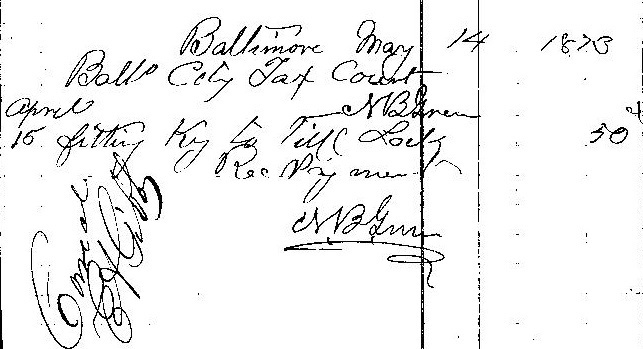 Baltimore May 14 1873
Balto City Tax Court
N B Green
April
15 fitting Key to Till Lock 50
Rec Payment
N B Green